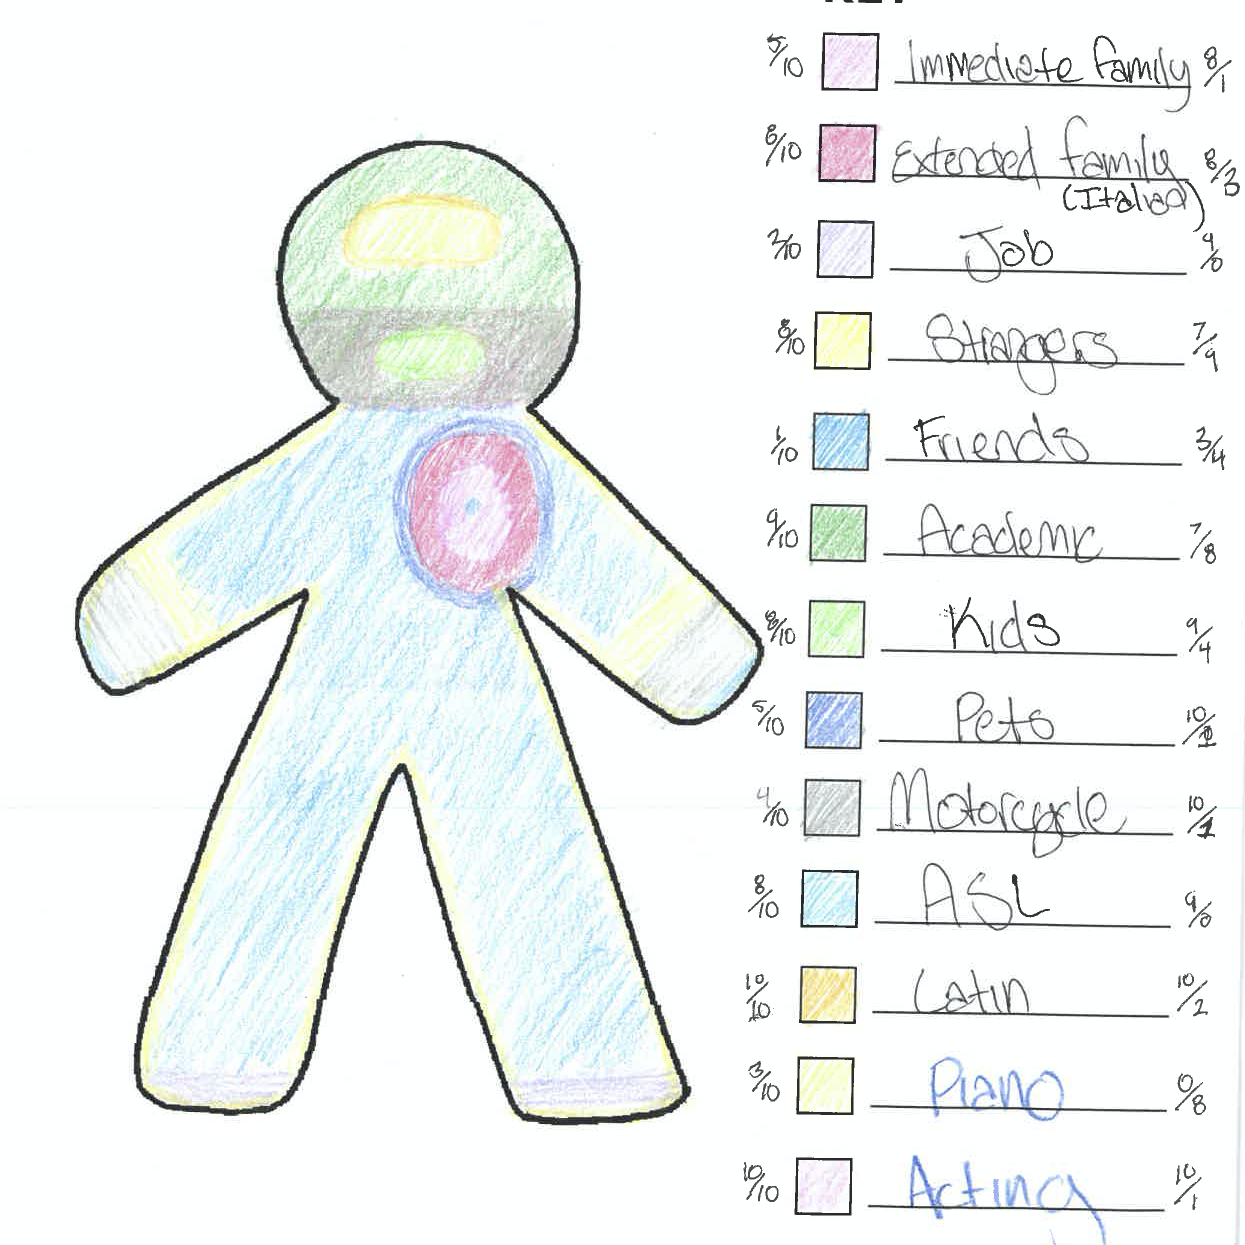 KEY
5/10 Immediate family 8/1
8/10 Extended family 8/3
(Italian)
2/10 Job 9/0
8/10 Strangers 7/9
1/10 Friends 3/4
9/10 Academic 7/8
8/10 Kids 9/4
5/10 Pets 10/1
4/10 Motorcycle 10/1
8/10 ASL 9/0
10/10 Latin 10/2
3/10 Piano 0/8
10/10 Acting 10/1